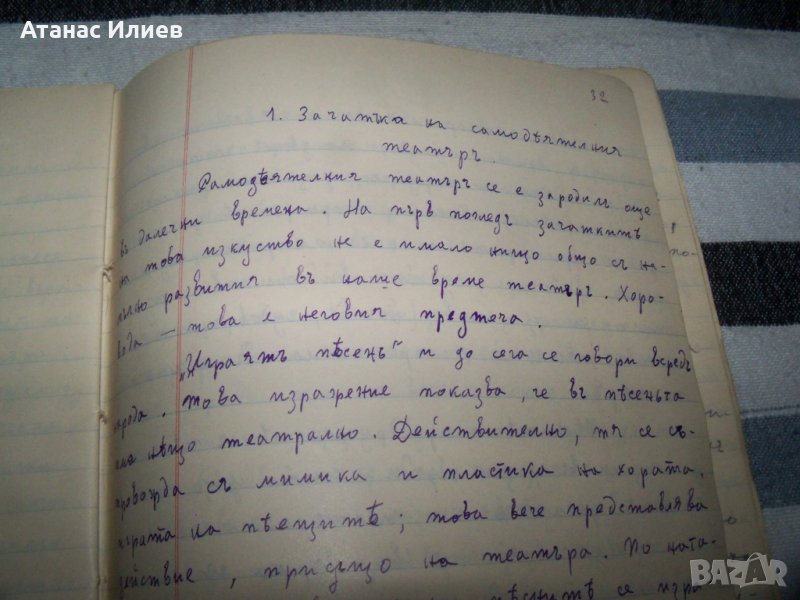 Атанас Илиев
32
1. Зачатъка на самодѣятелния
театъръ.
Самодѣятелния театъръ се е зародилъ още
въ далечни времена. На пръвъ погледъ зачаткитѣ
на това изкуство не е имало нищо общо съ на-
пълно развития въ наше време театъръ. Хоро-
вода – това е неговия предтеча.
„Играятъ пѣсень" и до сега се говори всредъ
народа. Това изражение показва, че въ пѣсеньта
има нѣщо театрално. Действително, тя се съ-
провожда съ мимика и пластика на хората,
играта на пѣвцитѣ; това вече представлява
действие, присѫщо на театъра. По ната-
се изра
BAZAR